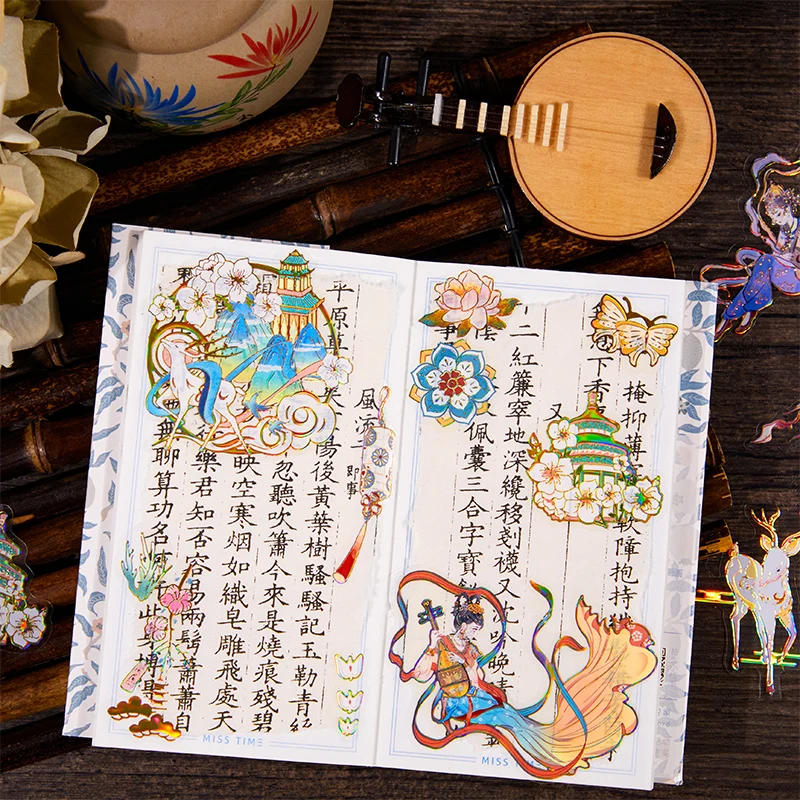 掩抑薄 軟障抱持
下香
又
二 紅簾窣地深纔移剗襪又沈吟晚
佩囊三合字寶
風流
即事
平原草 陽後黃葉樹騷騷記玉勒青
忽聽吹簫今來是燒痕殘碧
映空寒烟如織皂雕飛處天
樂君知否容易兩鬢蕭蕭自
無聊算功名 此身博
MISS TIME
MISS TIM